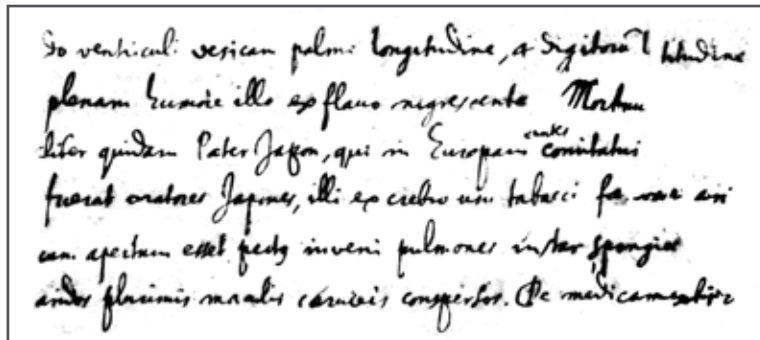 do ventriculi vesicam palmi longitudine, 4 digitorū latitudine
plenam humore illo ex flavo nigrescente Mortuu
liter quidam Pater Japon, qui in Europam euntes comitatus
fuerat oratores Japones, illi ex crebro usu tabacci
cum apertum esset pectus inveni pulmones instar spongiæ
aridos plurimis maculis conspersos. De medicamentis